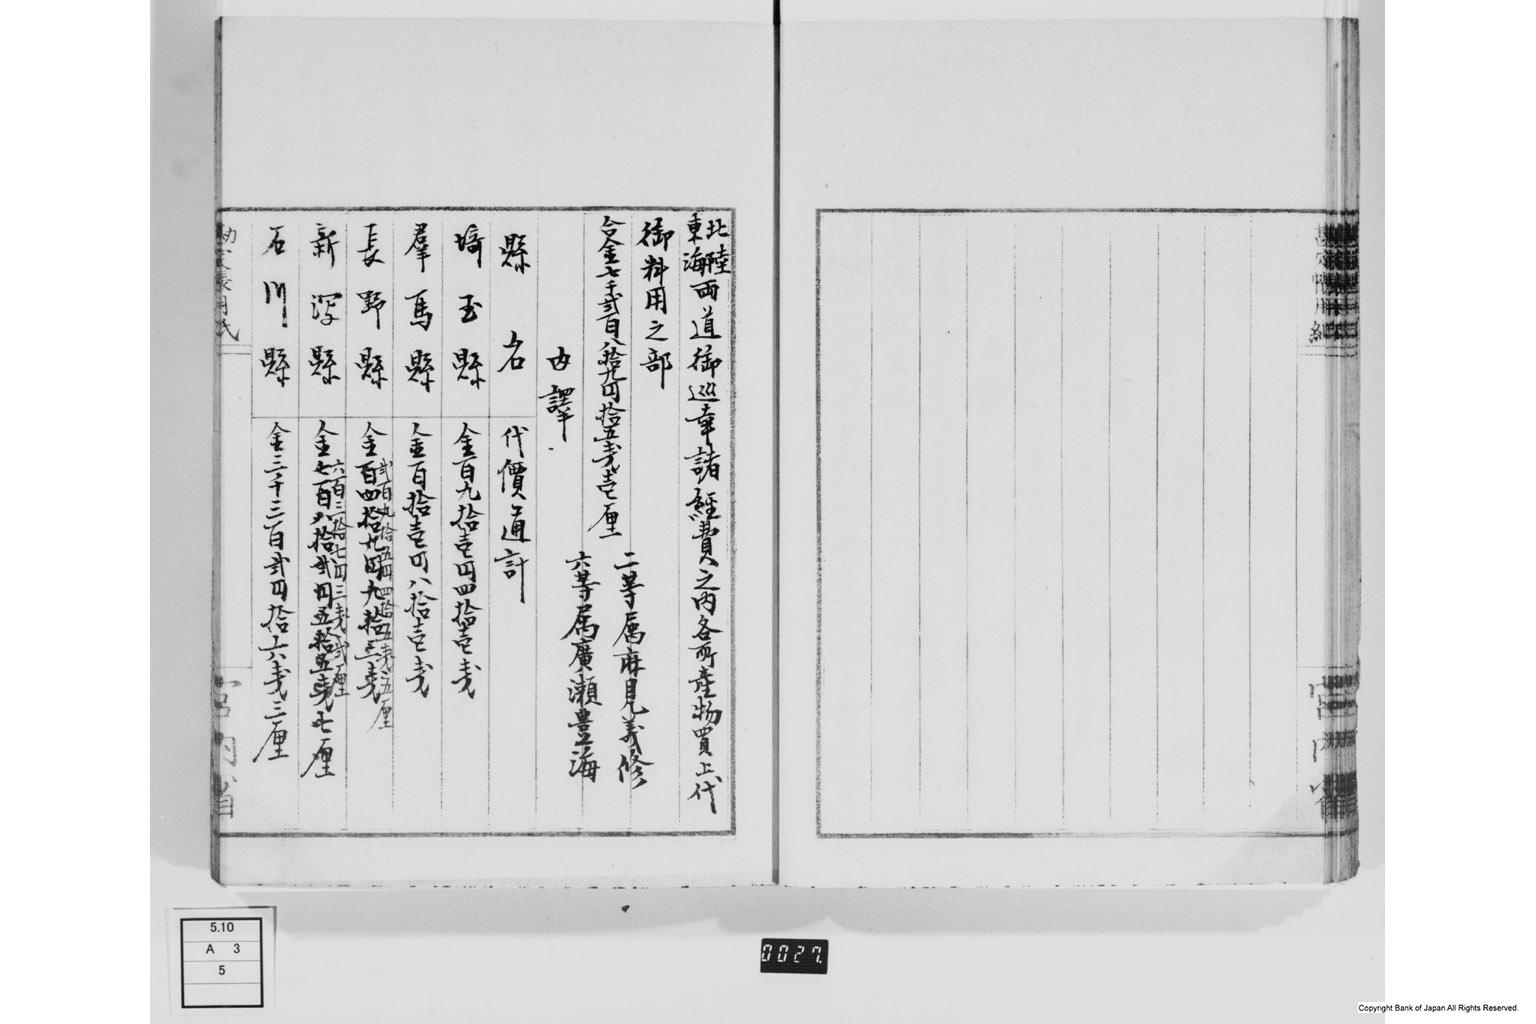 北陸
東海
両道御巡幸諸經費之内各所産物買上代
御料用之部
合金七千弐百八拾九円拾五銭壱厘
二等属麻見義修
六等属廣瀬豊海
内譯
縣名 代價通計
埼玉縣 金百九拾壱円四拾壱銭
羣馬縣 金百拾壱円八拾壱銭
長野縣 金百四拾九円九拾三銭
弐百九拾五円四拾五銭五厘
新潟縣 金七百八拾弐円五拾五銭七厘
六百三拾七円三銭弐厘
石川縣 金二千三百弐円拾六銭三厘
宮内省
宮内省
5.10
A 3
5
0027.
Copyright Bank of Japan All Rights Reserved.